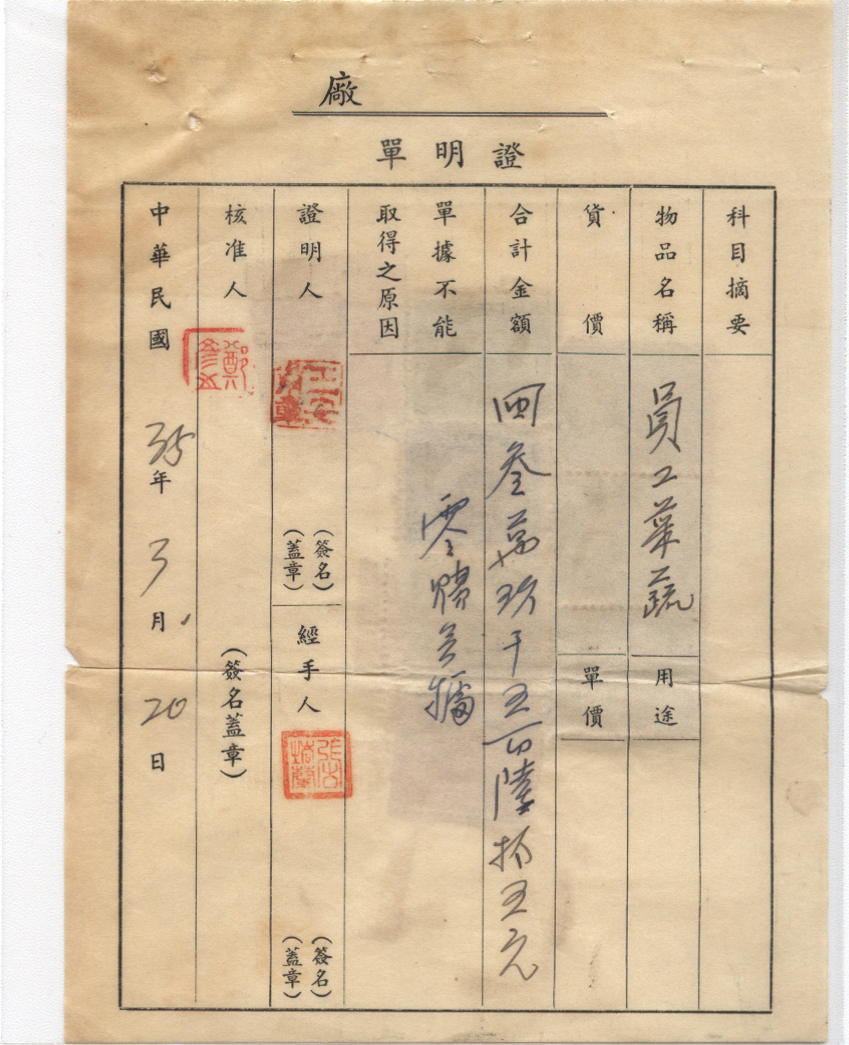 廠
證明單
科目摘要
物品名稱
員工菜蔬
用途
貨價
單價
合計金額
叁萬玖千五百陸拾五元
單據不能
取得之原因
零購無據
證明人
(簽名
蓋章)
經手人
(簽名
蓋章)
核准人
(簽名蓋章)
中華民國35年3月20日